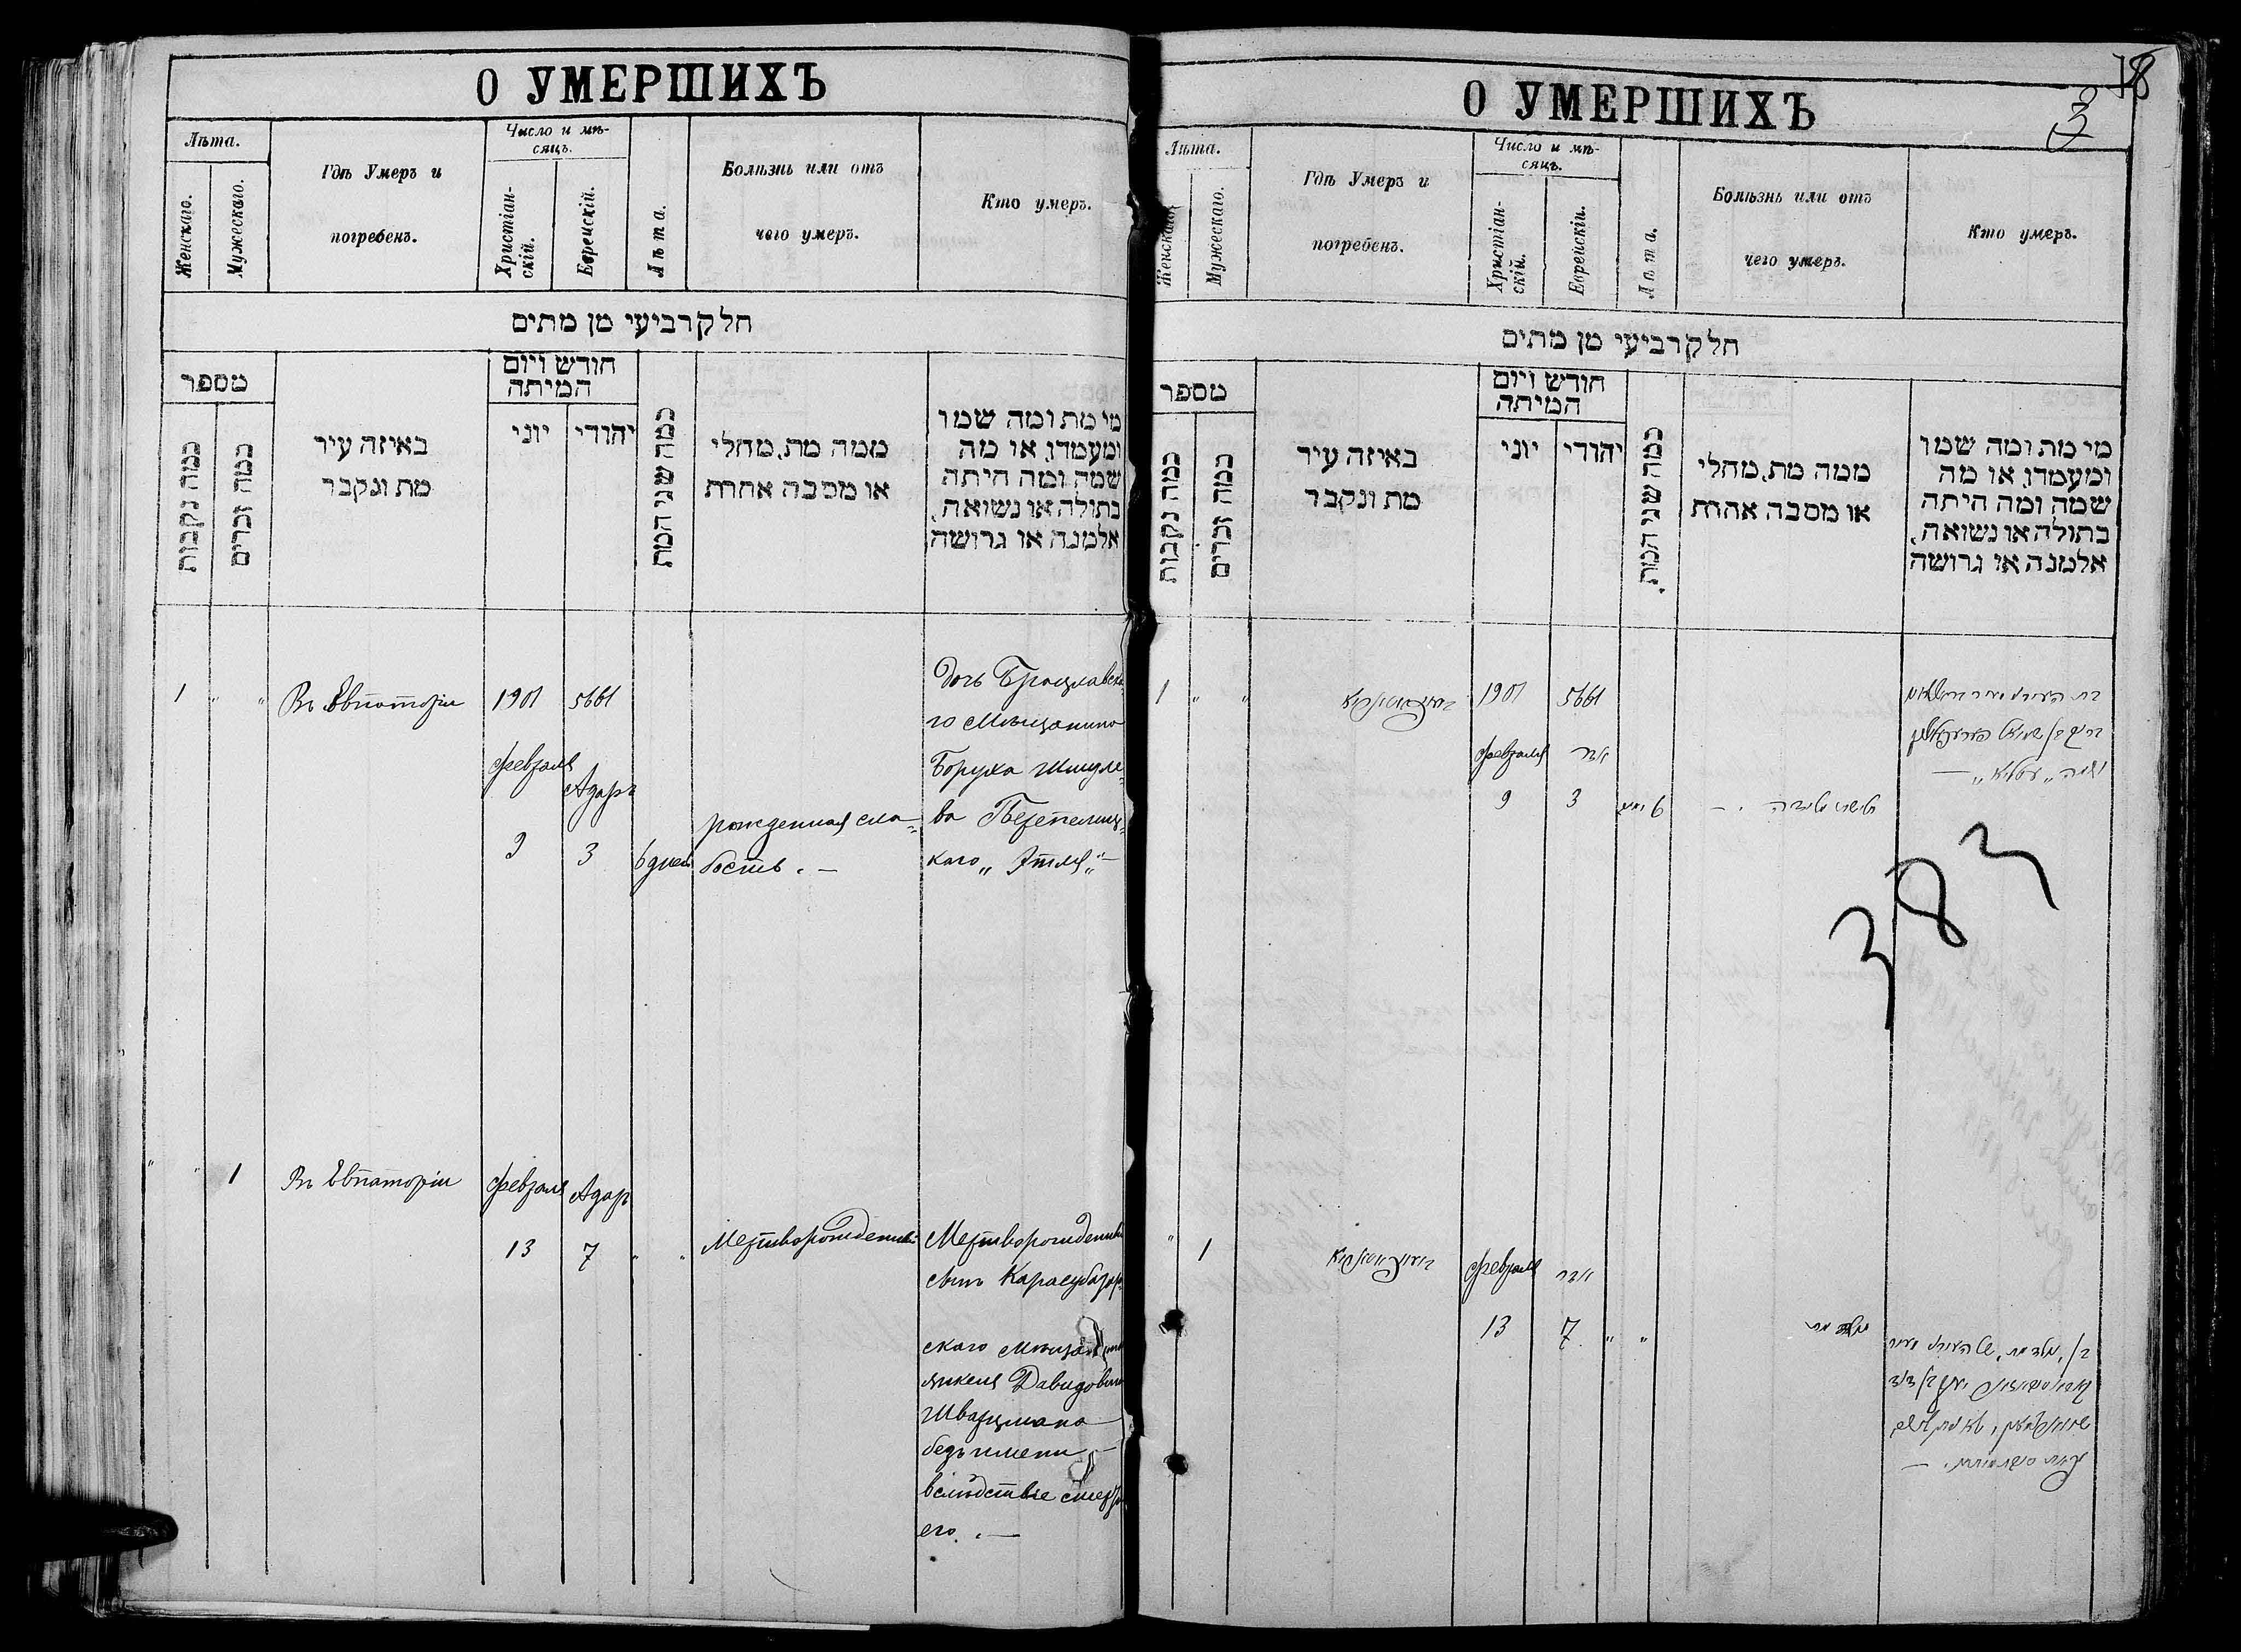 О УМЕРШИХЪ
Лѣта.
Женскаго.
Мужескаго.
Гдѣ Умеръ и
погребенъ.
Число и мѣ-
сяцъ.
Христіан-
скій.
Еврейскій.
Лѣта.
Болѣзнь или отъ
чего умеръ.
Кто умеръ.
חלק רביעי מן מתים
מספר
כמה נקבות
כמה זכרים
באיזה עיר
מת ונקבר
חודש ויום
המיתה
יוני
יהודי
כמה שני המת
ממה מת, מחלי
או מסבה אחרת
מי מת ומה שמו
ומעמדו, או מה
שמה ומה היתה
בתולה או נשואה,
אלמנה או גרושה
1 " "
Въ Евпаторіи
1901
февраля
9
5661
Адаръ
3
6 дней
рожденная сла-
бость. —
дочь Брацлавска-
го Мѣщанина
Боруха Шмуле-
ва Перепелиц-
каго „Этля" —
" " 1
Въ Евпаторіи
февраля
13
Адаръ
7
" "
Мертворожденный
Мертворожденный
сынъ Карасубазар-
скаго мѣщанина
Янкеля Давидовича
Шварцмана
безъ имени —
вслѣдствіе смерти
его. —
О УМЕРШИХЪ
18
Лѣта.
Женскаго.
Мужескаго.
Гдѣ Умеръ и
погребенъ.
Число и мѣ-
сяцъ.
Христіан-
скій.
Еврейскій.
Лѣта.
Болѣзнь или отъ
чего умеръ.
Кто умеръ.
חלק רביעי מן מתים
מספר
כמה נקבות
כמה זכרים
באיזה עיר
מת ונקבר
חודש ויום
המיתה
יוני
יהודי
כמה שני המת
ממה מת, מחלי
או מסבה אחרת
מי מת ומה שמו
ומעמדו, או מה
שמה ומה היתה
בתולה או נשואה,
אלמנה או גרושה
1 " "
1901
февраля
9
5661
אדר
3
6 ימים
383
" 1
февраля
13
אדר
7
" "